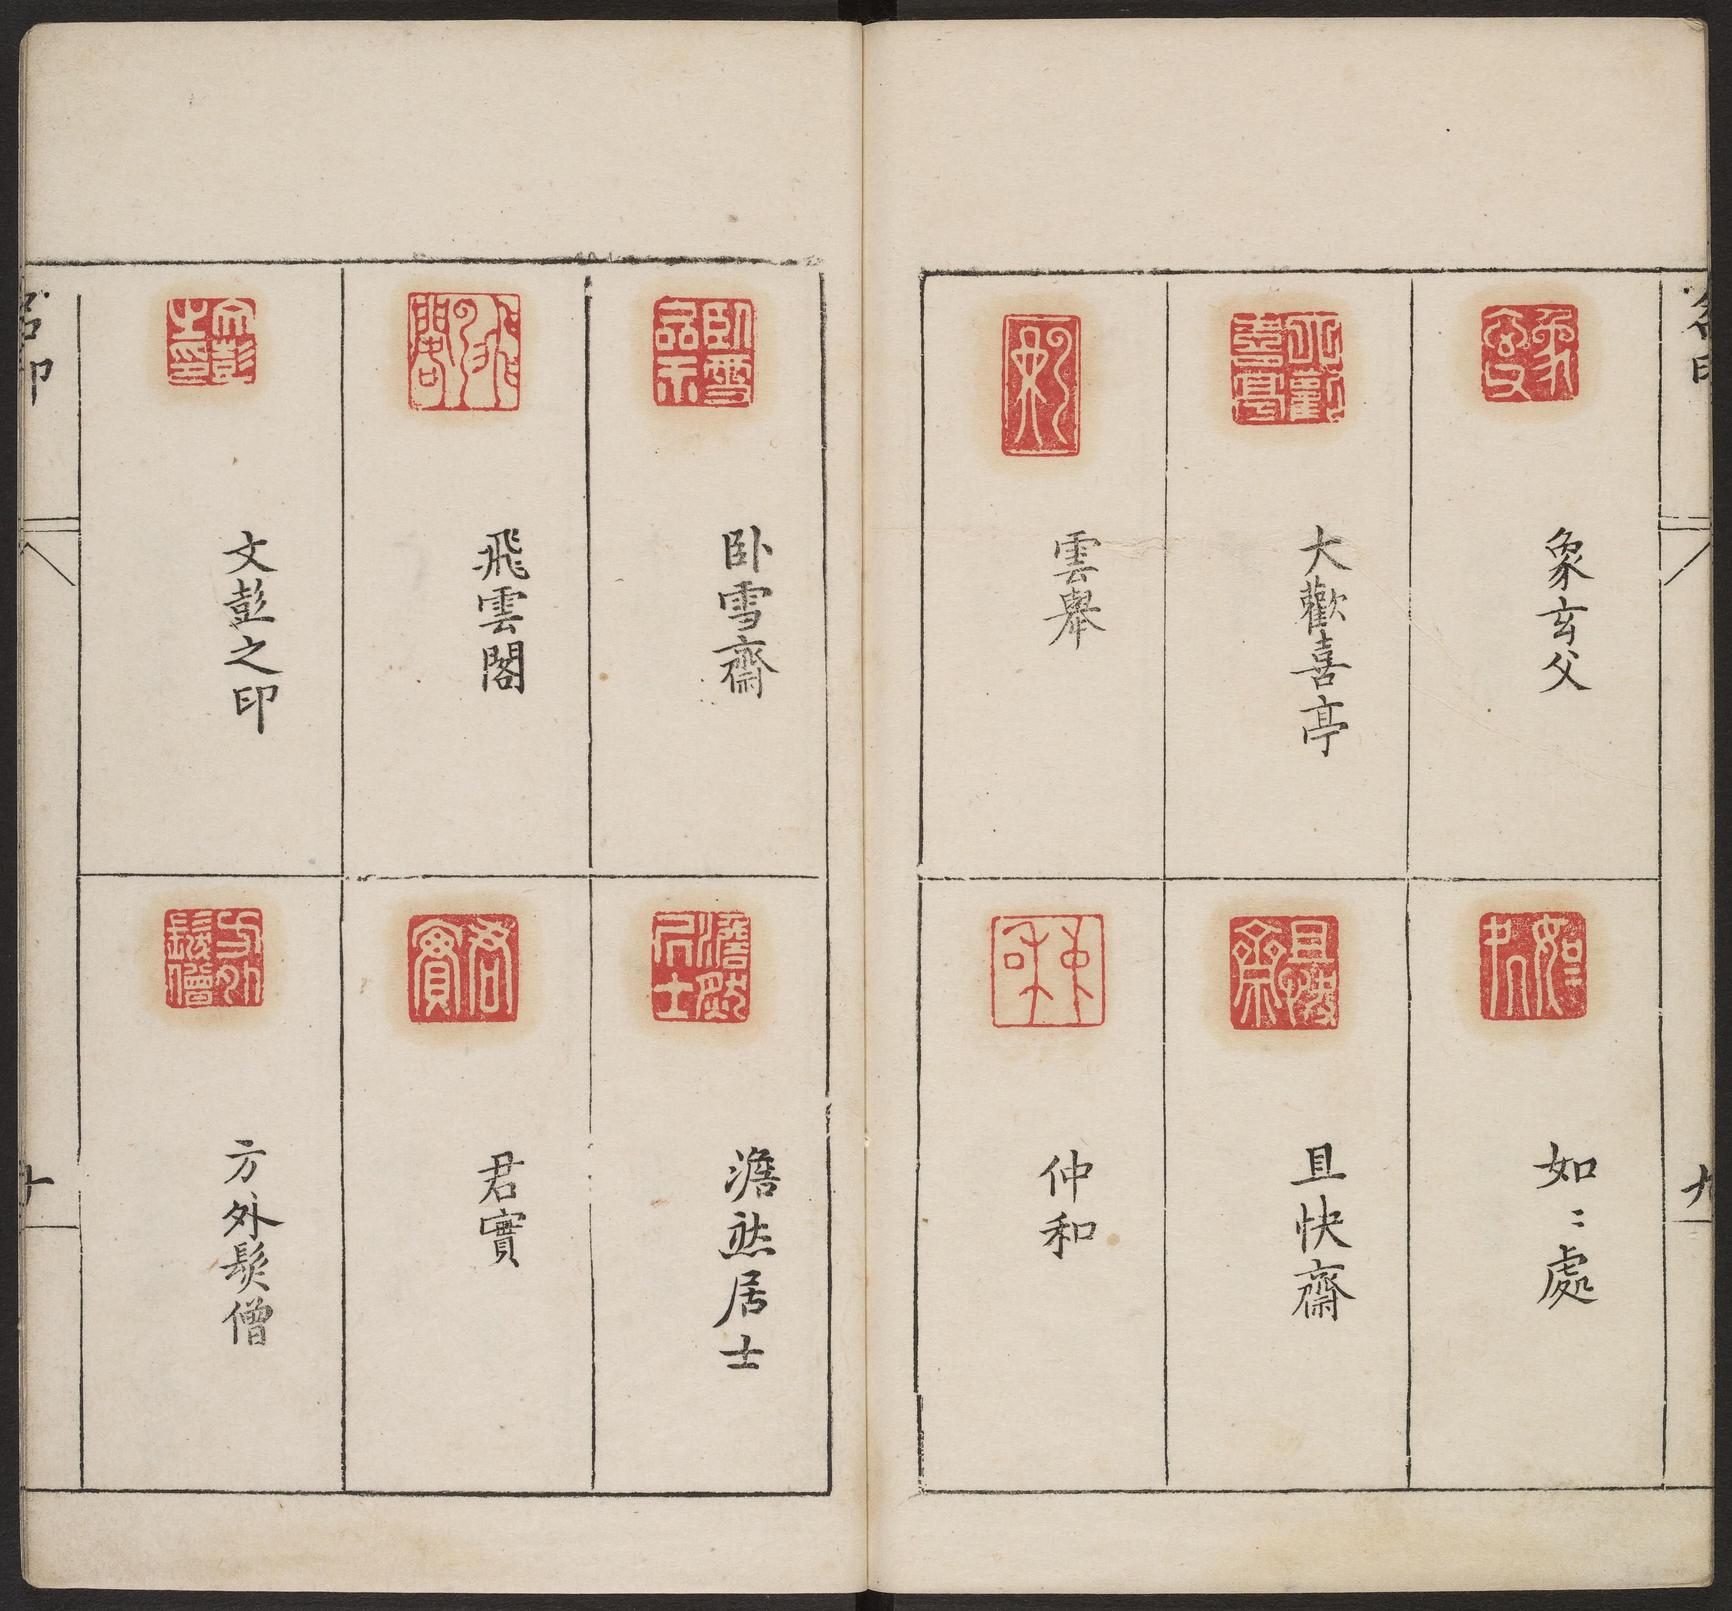 象玄父
如〻處
大歡喜亭
且快齋
雲舉
仲和
九
卧雪齋
澹然居士
飛雲閣
君實
文彭之印
方外髮僧
名印
十